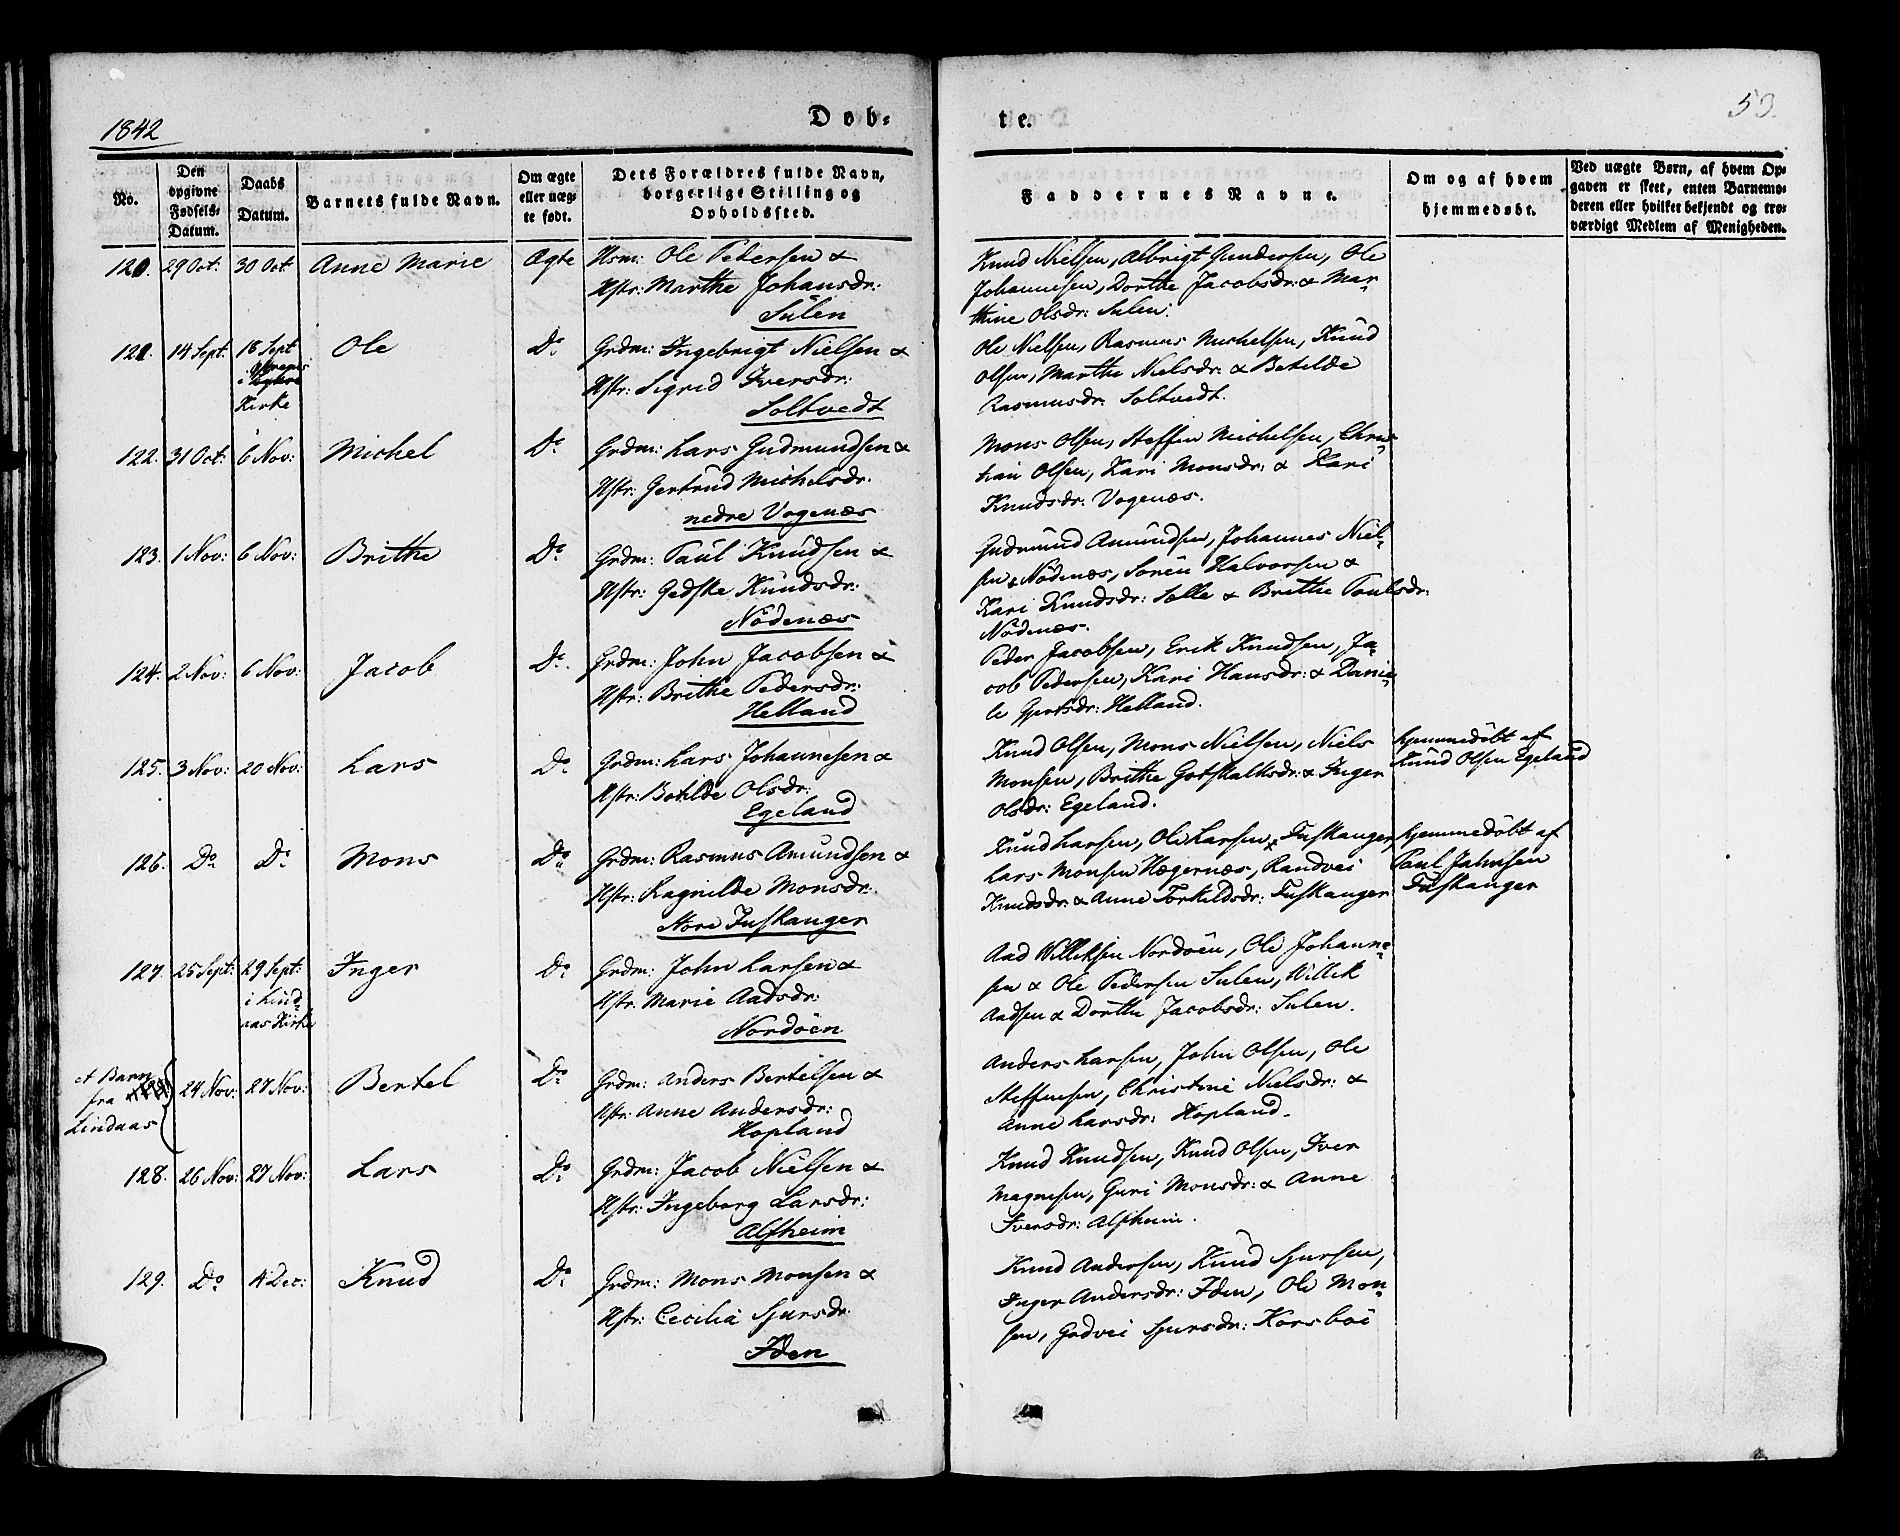 1842
Døb-
te.
53.
No.
Den opgivne Fødsels-Datum.
Daabs Datum.
Barnets fulde Navn.
Om ægte eller uægte født.
Dets Forældres fulde Navn, borgerlige Stilling og Opholdssted.
Faddernes Navne.
Om og af hvem hjemmedøbt.
Ved uægte Børn, af hvem Opgaven er skeet, enten Barnemoderen eller hvilket bekjendt og troværdigt Medlem af Menigheden.
120. 29 Oct: 30 Oct Anne Marie Ægte Hsm: Ole Pedersen &
Hstr: Marthe Johansdr:
Sulen
Knud Nielsen, Albrigt Gundersen, Ole
Johannesen, Dorthe Jacobsdr: & Mar-
thine Olsdr: Sulen.
121. 14 Sept: 18 Sept
Kirke
Ole Do Grdm: Ingebrigt Nielsen &
Hstr: Sigrid Iversdr:
Soltvedt
Ole Nielsen, Rasmus Michelsen, Knud
Olsen, Marthe Nielsdr: & Botilde
Rasmusdr: Soltvedt.
122. 31 Oct: 6 Nov: Michel Do Grdm: Lars Gudmundsen &
Hstr: Gertrud Michelsdr.
nedre Vogenæs
Mons Olsen, Steffen Michelsen, Chris-
tian Olsen, Kari Monsdr: & Kari
Knudsdr: Vogenæs.
123. 1 Nov: 6 Nov: Brithe Do Grdm: Paul Knudsen &
Hstr: Gedske Knudsdr:
Nödenæs
Gudmund Amundsen, Johannes Niel-
sen Nödenæs, Sören Halvorsen &
Kari Knudsdr: Solle & Brithe Paulsdr:
Nödenæs.
124. 2 Nov: 6 Nov: Jacob Do Grdm: John Jacobsen &
Hstr: Brithe Pedersdr:
Helland
Peder Jacobsen, Erik Knudsen, Ja-
cob Pedersen, Kari Hansdr: & Danie-
le Gjertsdr: Helland.
125. 3 Nov: 20 Nov: Lars Do Grdm: Lars Johannesen &
Hstr: Botilde Olsdr:
Egeland
Knud Olsen, Mons Nielsen, Niels
Monsen, Brithe Gotskalksdr: & Inger
Olsdr: Egeland.
hjemmedöbt af
Knud Olsen Egeland
126. Do Do Mons Do Grdm: Rasmus Amundsen &
Hstr: Ragnilde Monsdr:
Store Fuskanger
Knud Larsen, Ole Larsen, Fuskanger,
Lars Monsen Hægernæs, Randvei
Knudsdr: & Anne Torkildsdr: Fuskanger
hjemmedöbt af
Paul Jahnsen
Fuskanger
127. 25 Sept: 29 Sept:
i Lind-
aas Kirke
Inger Do Grdm: John Larsen &
Hstr: Marie Aadsdr:
Nordöen
Aad Williksen Nordöen, Ole Johanne-
sen & Ole Pedersen Sulen, Willik
Aadsen & Dorthe Jacobsdr: Sulen.
et Barn
fra
Lindaas
24 Nov: 27 Nov: Bertel Do Grdm: Anders Bertelsen &
Hstr: Anne Andersdr:
Hopland
Anders Larsen, John Olsen, Ole
Steffensen, Christine Nielsdr: &
Anne Larsdr: Hopland.
128. 26 Nov: 27 Nov: Lars Do Grdm: Jacob Nielsen &
Hstr: Ingeborg Larsdr:
Alfheim
Knud Knudsen, Knud Olsen, Iver
Magnesen, Guri Monsdr: & Anne
Iversdr: Alfheim.
129. Do 4 Dec: Knud Do Grdm: Mons Monsen &
Hstr: Cecilia Sjursdr:
Iden
Knud Andersen, Knud Sjursen,
Inger Andersdr: Iden, Ole Mon-
sen, Godvei Sjursdr: Korsböe